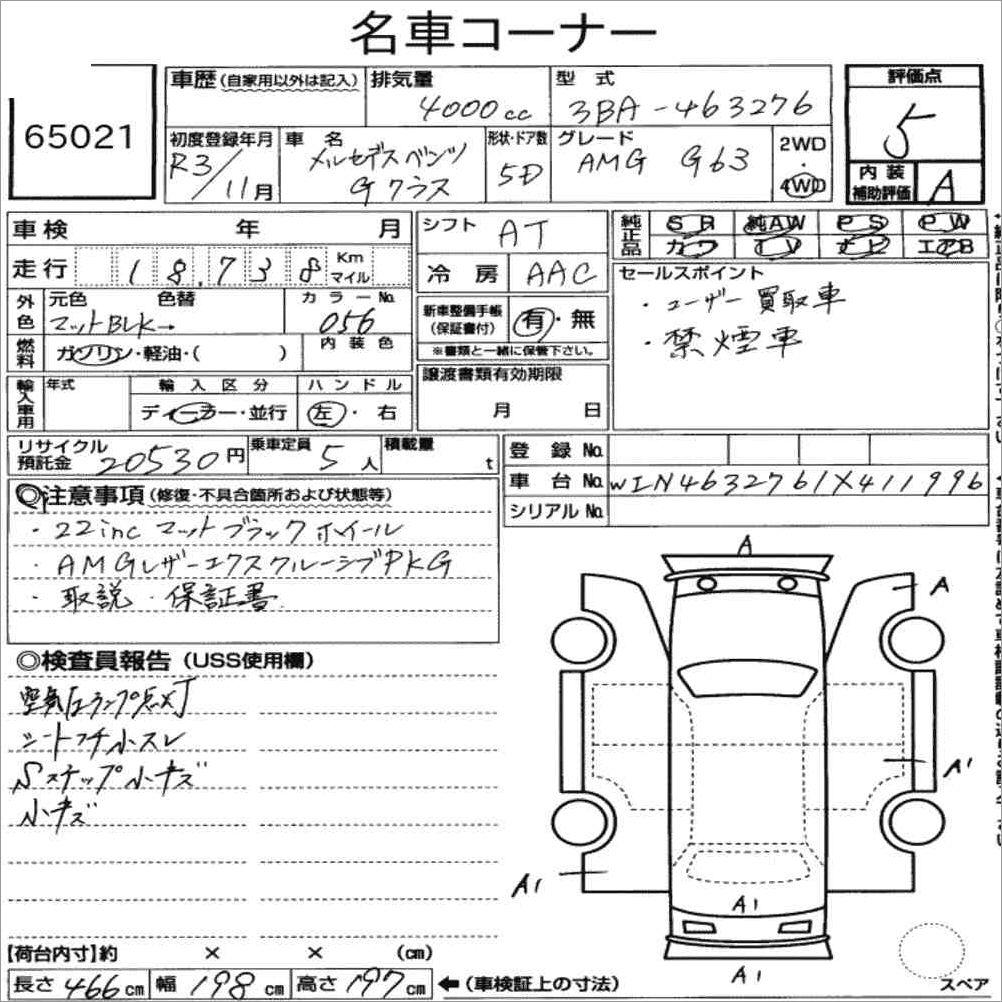 名車コーナー
65021
車歴(自家用以外は記入)
排気量
4000cc
型式
3BA-463276
評価点
5
初度登録年月
R3/11月
車名
メルセデスベンツ
Gクラス
形状・ドア数
5D
グレード
AMG G63
2WD
・
4WD
内装
補助評価
A
車検 年 月
シフト AT
純正品
SR 純AW PS PW
カワ TV ナビ エアB
走行 18,738 Km
マイル
冷房 AAC
セールスポイント
・ユーザー買取車
・禁煙車
外色
元色 色替 カラーNo.
マットBLK→ 056
新車整備手帳
(保証書付)
有・無
※書類と一緒に保管下さい。
燃料
ガソリン・軽油・( )
内装色
輸入車用
年式 輸入区分 ハンドル
ディーラー・並行 左・右
譲渡書類有効期限
月 日
リサイクル
預託金 20530円
乗車定員 5人
積載量 t
登録No.
車台No. W1N4632761X411996
シリアルNo.
◎注意事項(修復・不具合箇所および状態等)
・22inc マットブラックホイール
・AMGレザーエクスクルーシブPKG
・取説・保証書
◎検査員報告(USS使用欄)
空気圧ランプ点灯
シートフチ小スレ
Sステップ小キズ
小キズ
A
A
A1
A1
A1
A1
【荷台内寸】約 × × (cm)
長さ 466cm 幅 198cm 高さ 197cm ←(車検証上の寸法)
スペア